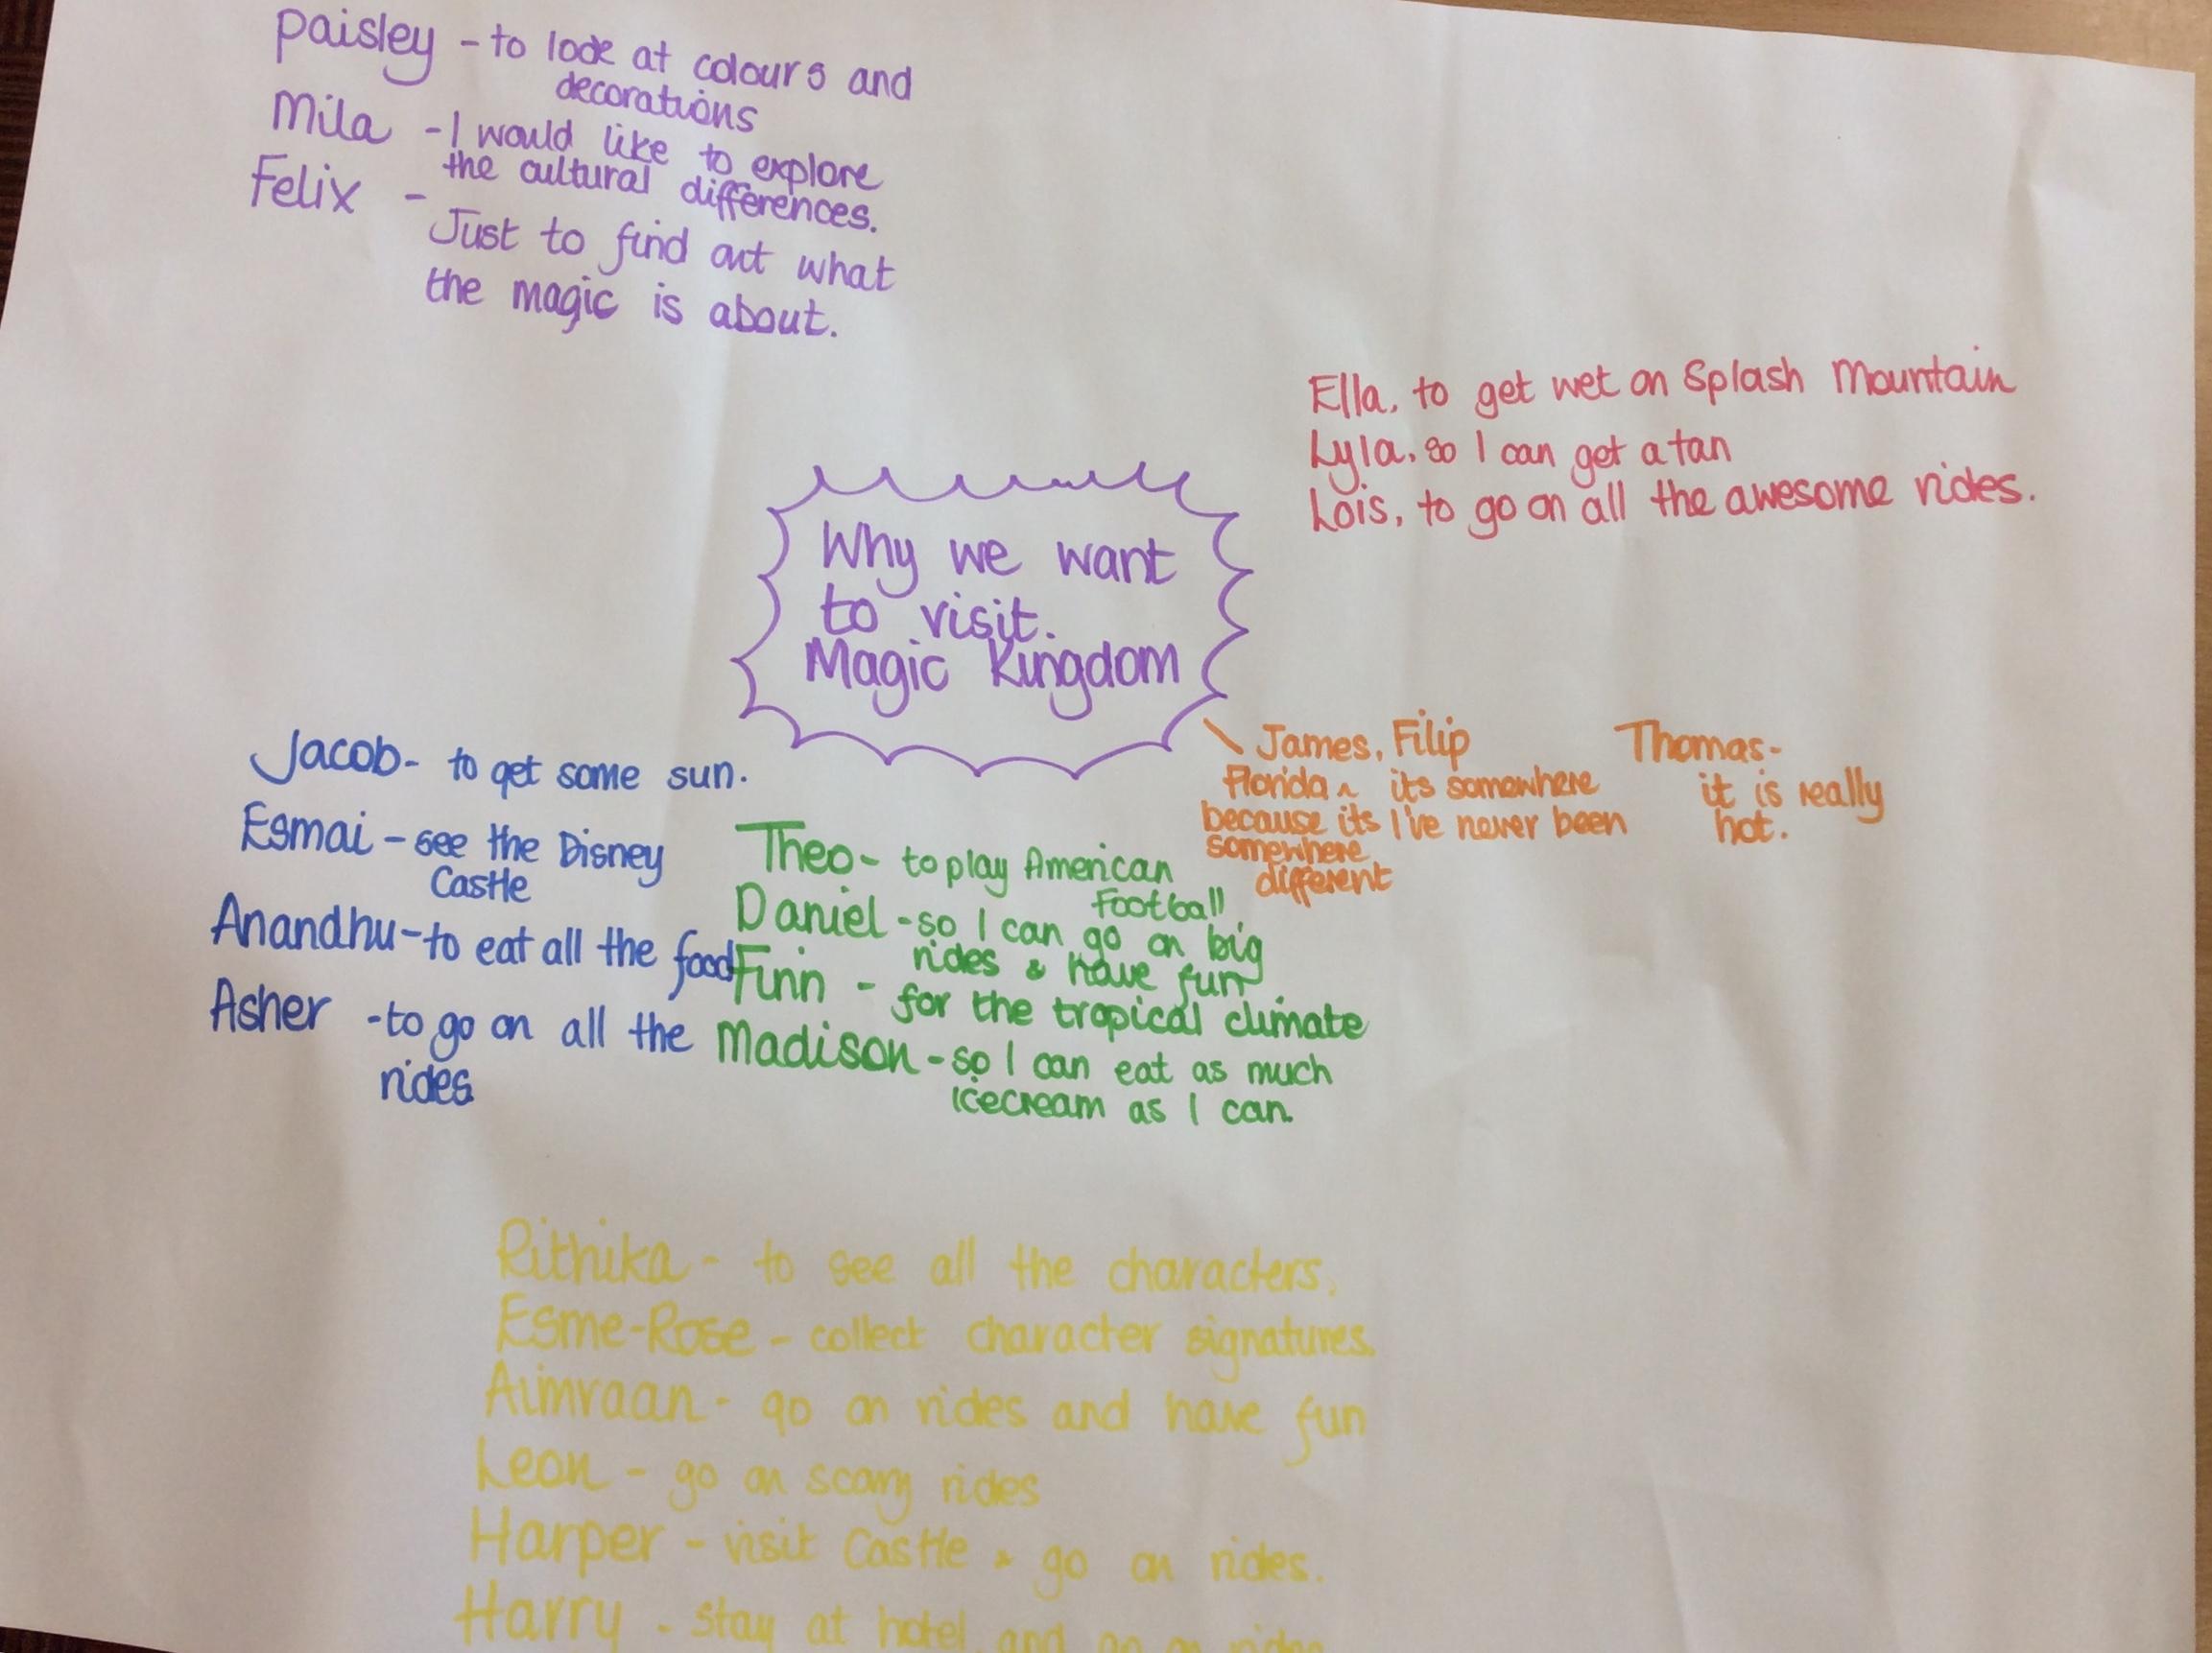 Paisley - to look at colours and
decorations
Mila - I would like to explore
the cultural differences.
Felix -
Just to find out what
the magic is about.
Ella, to get wet on Splash Mountain
Lyla, so I can get a tan
Lois, to go on all the awesome rides.
Why we want
to visit.
Magic Kingdom
Jacob - to get some sun.
Esmai - see the Disney
Castle
Anandhu - to eat all the food
Asher - to go on all the
rides
Theo - to play American
Football
Daniel - so I can go on big
rides & have fun
Finn - for the tropical climate
Madison - so I can eat as much
icecream as I can.
James, Filip
Florida its somewhere
because its I've never been
somewhere
different
Thomas -
it is really
hot.
Rithika - to see all the characters.
Esme-Rose - collect character signatures.
Aimraan - go on rides and have fun
Leon - go on scary rides
Harper - visit Castle & go on rides.
Harry - stay at hotel and go on rides